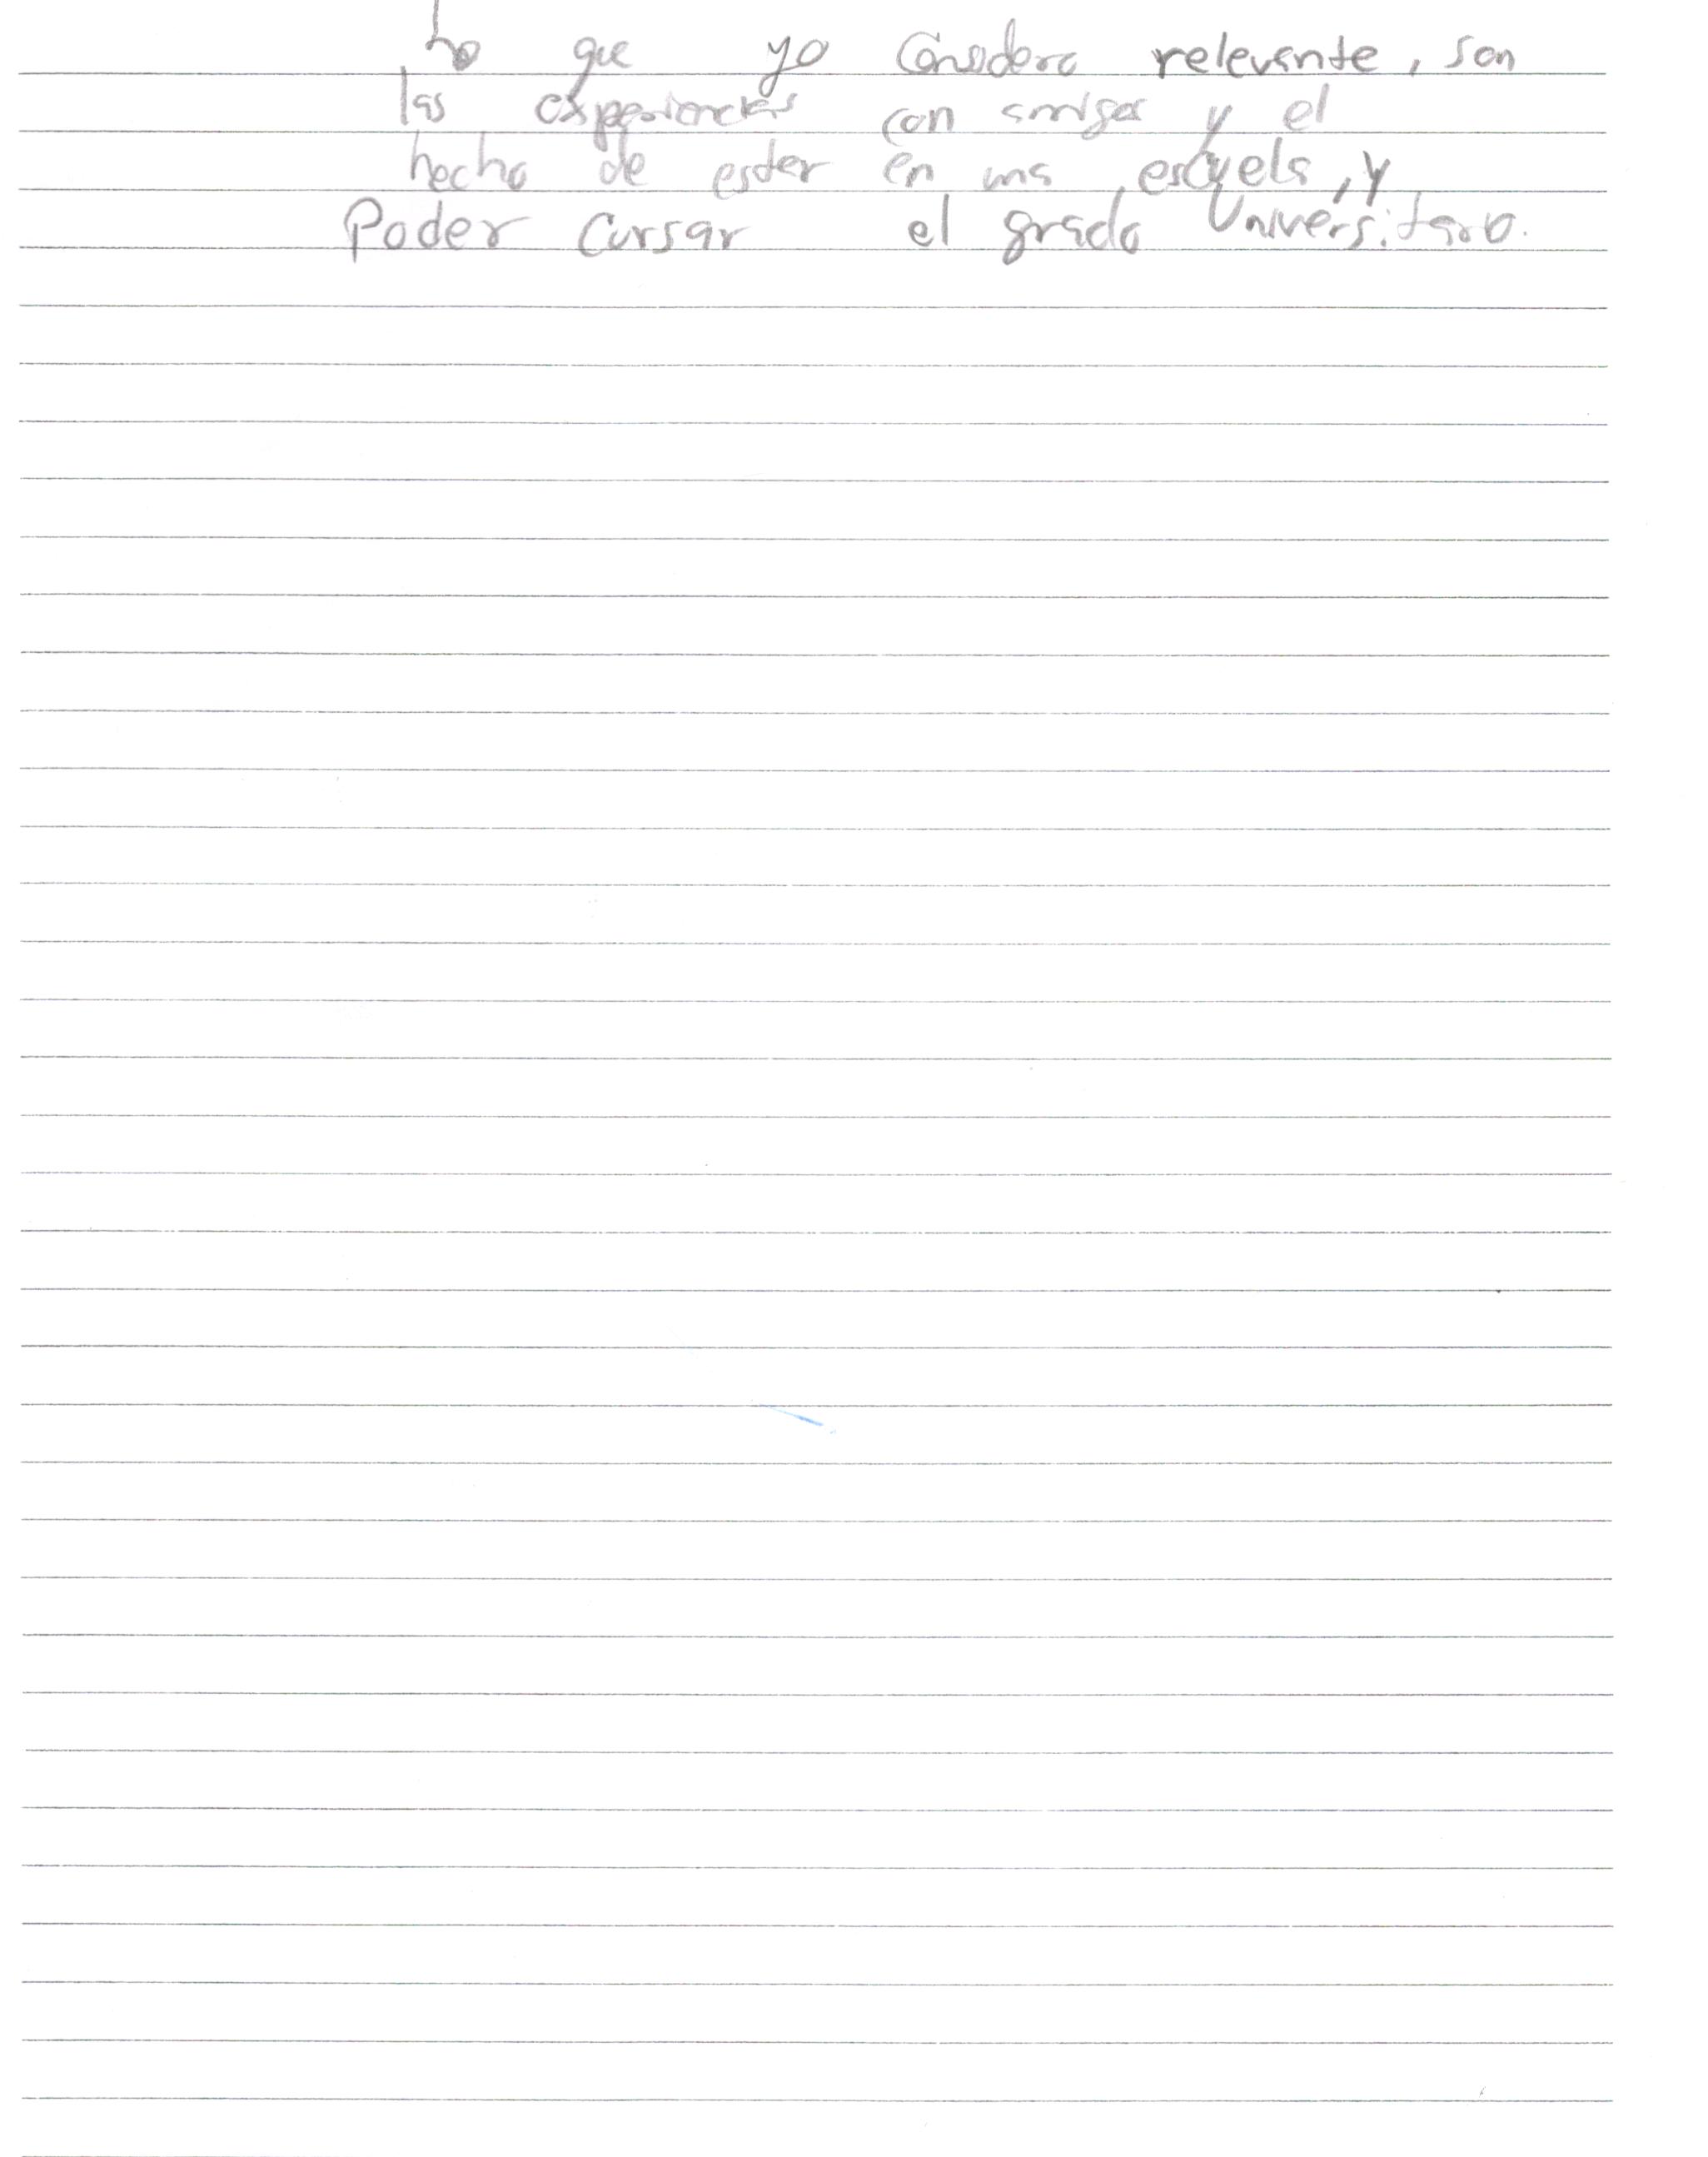 Lo que yo considero relevante, son
las experiencias con amigos y el
hecho de estar en una escuela, y
Poder Cursar el grado Universitario.